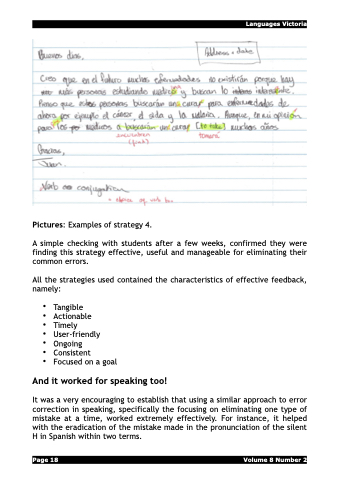 Languages Victoria
Buenos días,
Address + date
Creo que en el futuro muchas enfermedades no existirán porque hay
personas estudiando y buscan lo
Pienso que estas personas buscarán una curar para enfermedades de
ahora por ejemplo el cáncer, el sida y la malaria. Aunque, en mi opinión
para los a buscarán un curar [to take] muchos años
encuentren
(find)
tomará
Gracias,
Verb no conjugation
Pictures: Examples of strategy 4.
A simple checking with students after a few weeks, confirmed they were
finding this strategy effective, useful and manageable for eliminating their
common errors.
All the strategies used contained the characteristics of effective feedback,
namely:
• Tangible
• Actionable
• Timely
• User-friendly
• Ongoing
• Consistent
• Focused on a goal
And it worked for speaking too!
It was a very encouraging to establish that using a similar approach to error
correction in speaking, specifically the focusing on eliminating one type of
mistake at a time, worked extremely effectively. For instance, it helped
with the eradication of the mistake made in the pronunciation of the silent
H in Spanish within two terms.
Page 18
Volume 8 Number 2